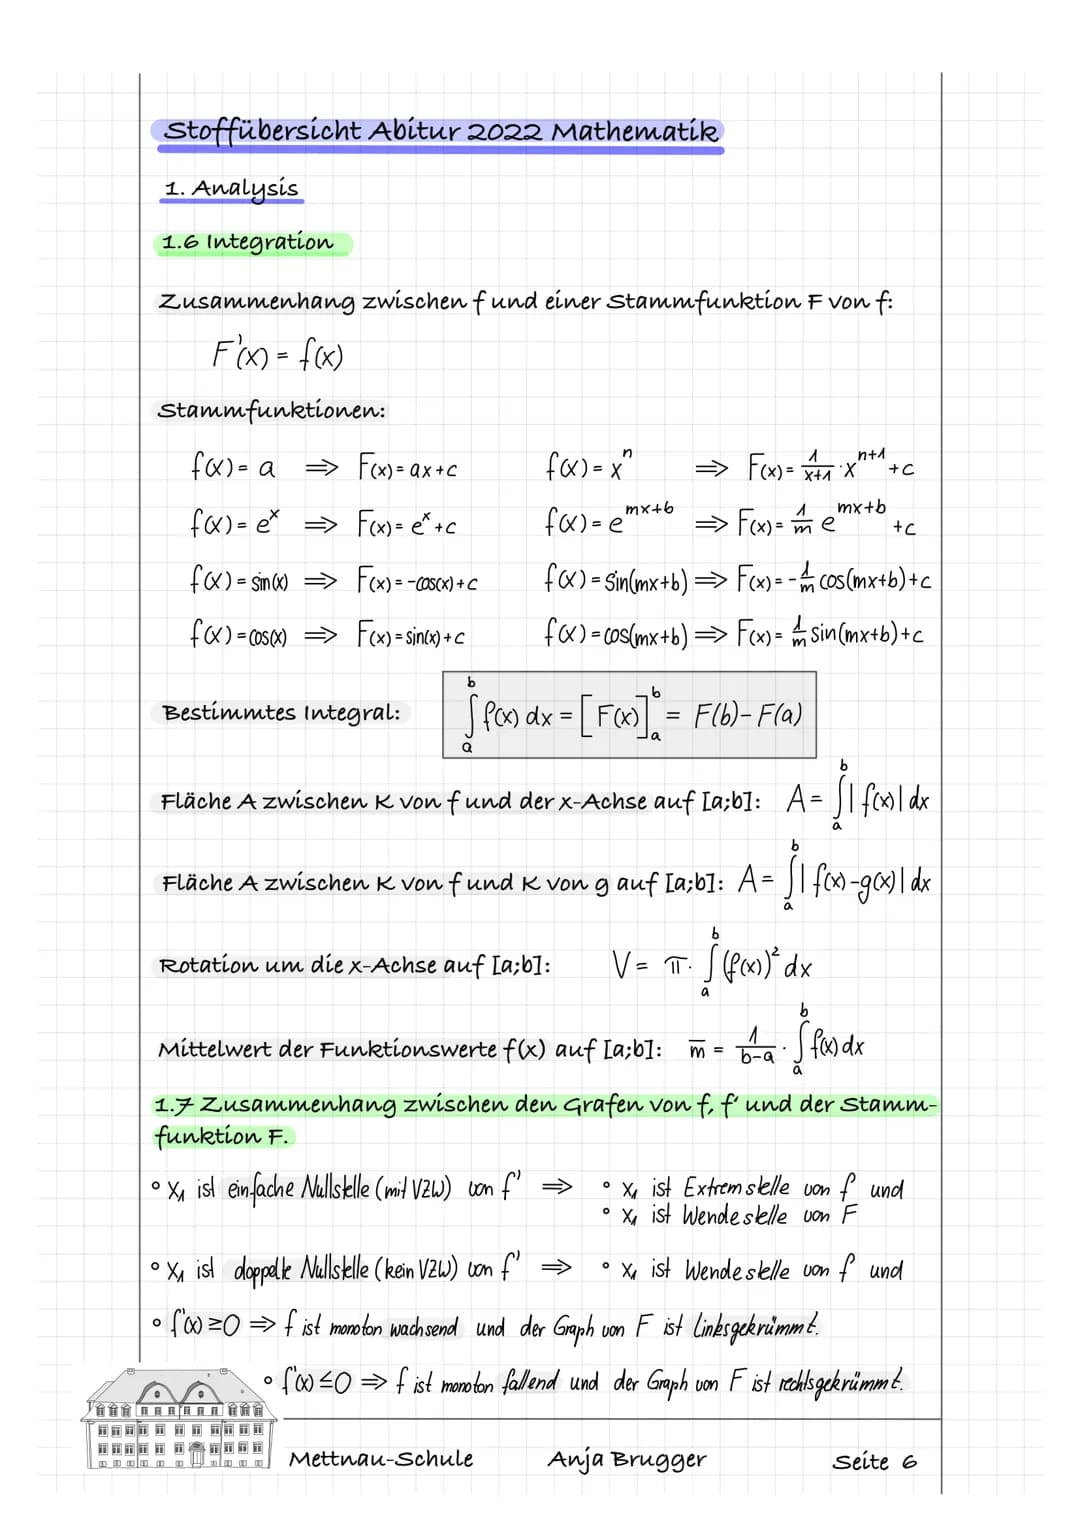 Stoffübersicht Abitur 2022 Mathematik
1. Analysis
1.6 Integration
Zusammenhang zwischen f und einer Stammfunktion F von f:
F'(x) = f(x)
Stammfunktionen:
f(x) = a ⇒ F(x) = ax + c f(x) = xⁿ ⇒ F(x) = 1/(x+1) · x^(n+1) + c
f(x) = e^x ⇒ F(x) = e^x + c f(x) = e^(mx+b) ⇒ F(x) = 1/m e^(mx+b) + c
f(x) = sin(x) ⇒ F(x) = -cos(x) + c f(x) = sin(mx+b) ⇒ F(x) = -1/m cos(mx+b) + c
f(x) = cos(x) ⇒ F(x) = sin(x) + c f(x) = cos(mx+b) ⇒ F(x) = 1/m sin(mx+b) + c
Bestimmtes Integral: ∫_a^b f(x) dx = [F(x)]_a^b = F(b) - F(a)
Fläche A zwischen K von f und der x-Achse auf [a;b]: A = ∫_a^b |f(x)| dx
Fläche A zwischen K von f und K von g auf [a;b]: A = ∫_a^b |f(x) - g(x)| dx
Rotation um die x-Achse auf [a;b]: V = π · ∫_a^b (f(x))² dx
Mittelwert der Funktionswerte f(x) auf [a;b]: m̅ = 1/(b-a) · ∫_a^b f(x) dx
1.7 Zusammenhang zwischen den Grafen von f, f' und der Stamm-
funktion F.
° x₁ ist einfache Nullstelle (mit VZW) von f' ⇒ ° x₁ ist Extremstelle von f und
° x₁ ist Wendestelle von F
° x₁ ist doppelte Nullstelle (kein VZW) von f' ⇒ ° x₁ ist Wendestelle von f und
° f'(x) ≥ 0 ⇒ f ist monoton wachsend und der Graph von F ist linksgekrümmt.
° f'(x) ≤ 0 ⇒ f ist monoton fallend und der Graph von F ist rechtsgekrümmt.
Mettnau-Schule Anja Brugger Seite 6